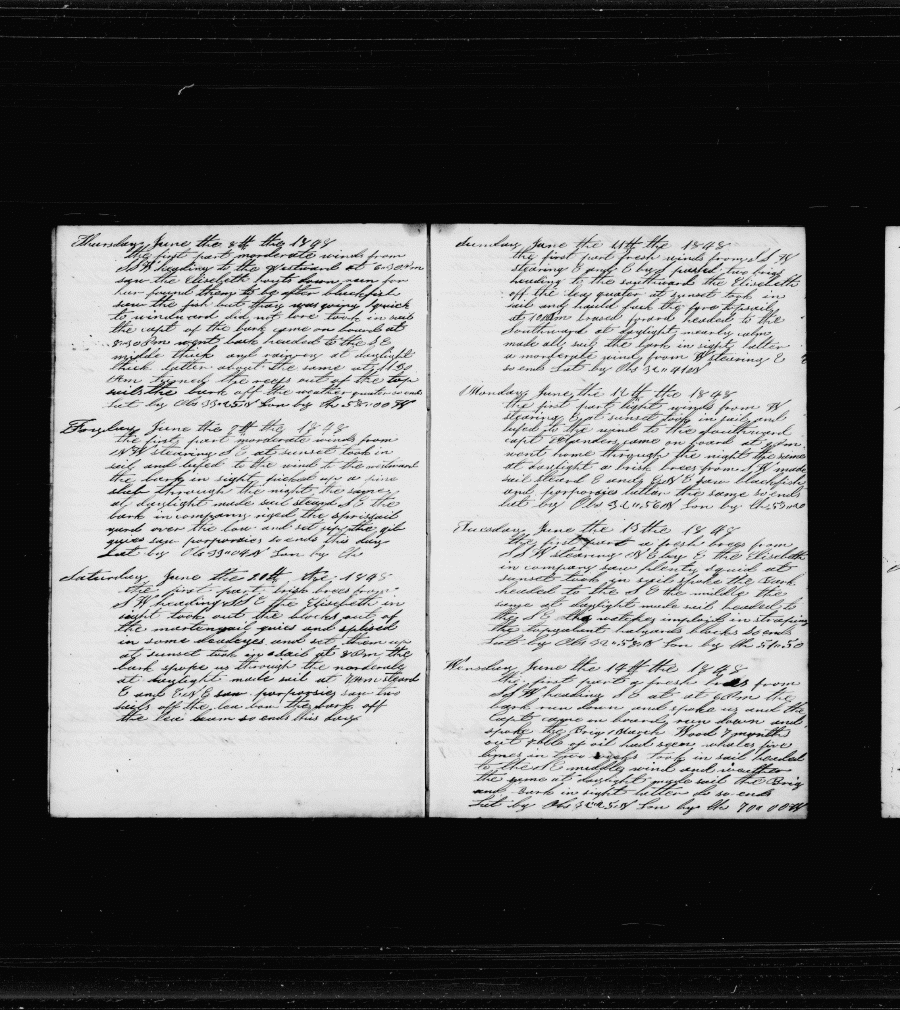 Thursday June the 8th the 1848
the first part morderate winds from
SSW heading to the Westward at 6-30 Pm
saw the Elisebeth bouts down ran for
her found them to be after blackfish
saw the fish but thay was going quick
to windward did not lore took in sail
the capt of the bark came on board at
8-30 Pm went back headed to the SE
middle thick and rainey at daylight
thick latter about the same at 11-30
Am turned the reefs out of the top
sails the bark off the weather quater so ends
Lat by Obs Lon by Chr
Fryday June the 9th the 1848
the first part morderate winds from
steering SE at sunset took in
sail and lufed to the wind to the westward
the bark in sight picked up a pine
slab through the night the same
at daylight made sail steard SE the
bark in company riged the spritsail
yard over the bow and set up the gib
guies saw porporsies so ends this day
Lat by Obs Lon by Chr
Saturday June the the 1848
the first part brisk brees from
SW heading the Elisebeth in
sight took out the blocks out of
the martengail guies and splised
in some deadeyes and set them up
at sunset took in sail at 8 Pm the
bark spoke us through the
at daylight made sail at 7 Am steard
E and saw porporsies saw two
sails off the lea bow the bark off
the lea beam so ends this day
Sunday June the 11th the 1848
the first part fresh winds from SSW
steering E and E by S pased two brigs
heading to the southward the Elisebeth
off the lea quater at sunset took in
sail and hauld back the fore topsail
at 10 Pm brased forard headed to the
Southward at daylight nearly calm
made all sail the bark in sight latter
a morderate wind from W steering E
so ends Lat by Obs
Monday June the 12th the 1848
the first part light winds from W
steering E at sunset took in sail and
lufed to the wind to the Southward
capt Flanders came on board at Pm
went home through the night the same
at daylight a brisk brees from SW made
sail steard E and saw blackfish
and porporsies latter the same so ends
Lat by Obs Lon by Chr
Tuesday June the 13th the 1848
the first part a fresh brees from
SSW steering the Elisebeth
in company saw plenty squid at
sunset took in sail spoke the Bark
headed to the SE the middle the
same at daylight made sail headed to
the SE the watches imploid in straping
the topgalant halyards blocks so ends
Lat by Obs Lon by Chr
Wensday June the 14th the 1848
the first part a fresh brees from
SSW heading SE at at 6 Pm the
bark run down and spoke us and the
Capt came on board run down and
spoke the Brig March Wood 7 months
out bbls of oil had seen whales five
times in two weeks took in sail headed
to the SE middle wind and weather
the same at daylight made sail the Brig
and Bark in sight latter do so ends
Lat by Obs Lon by Chr